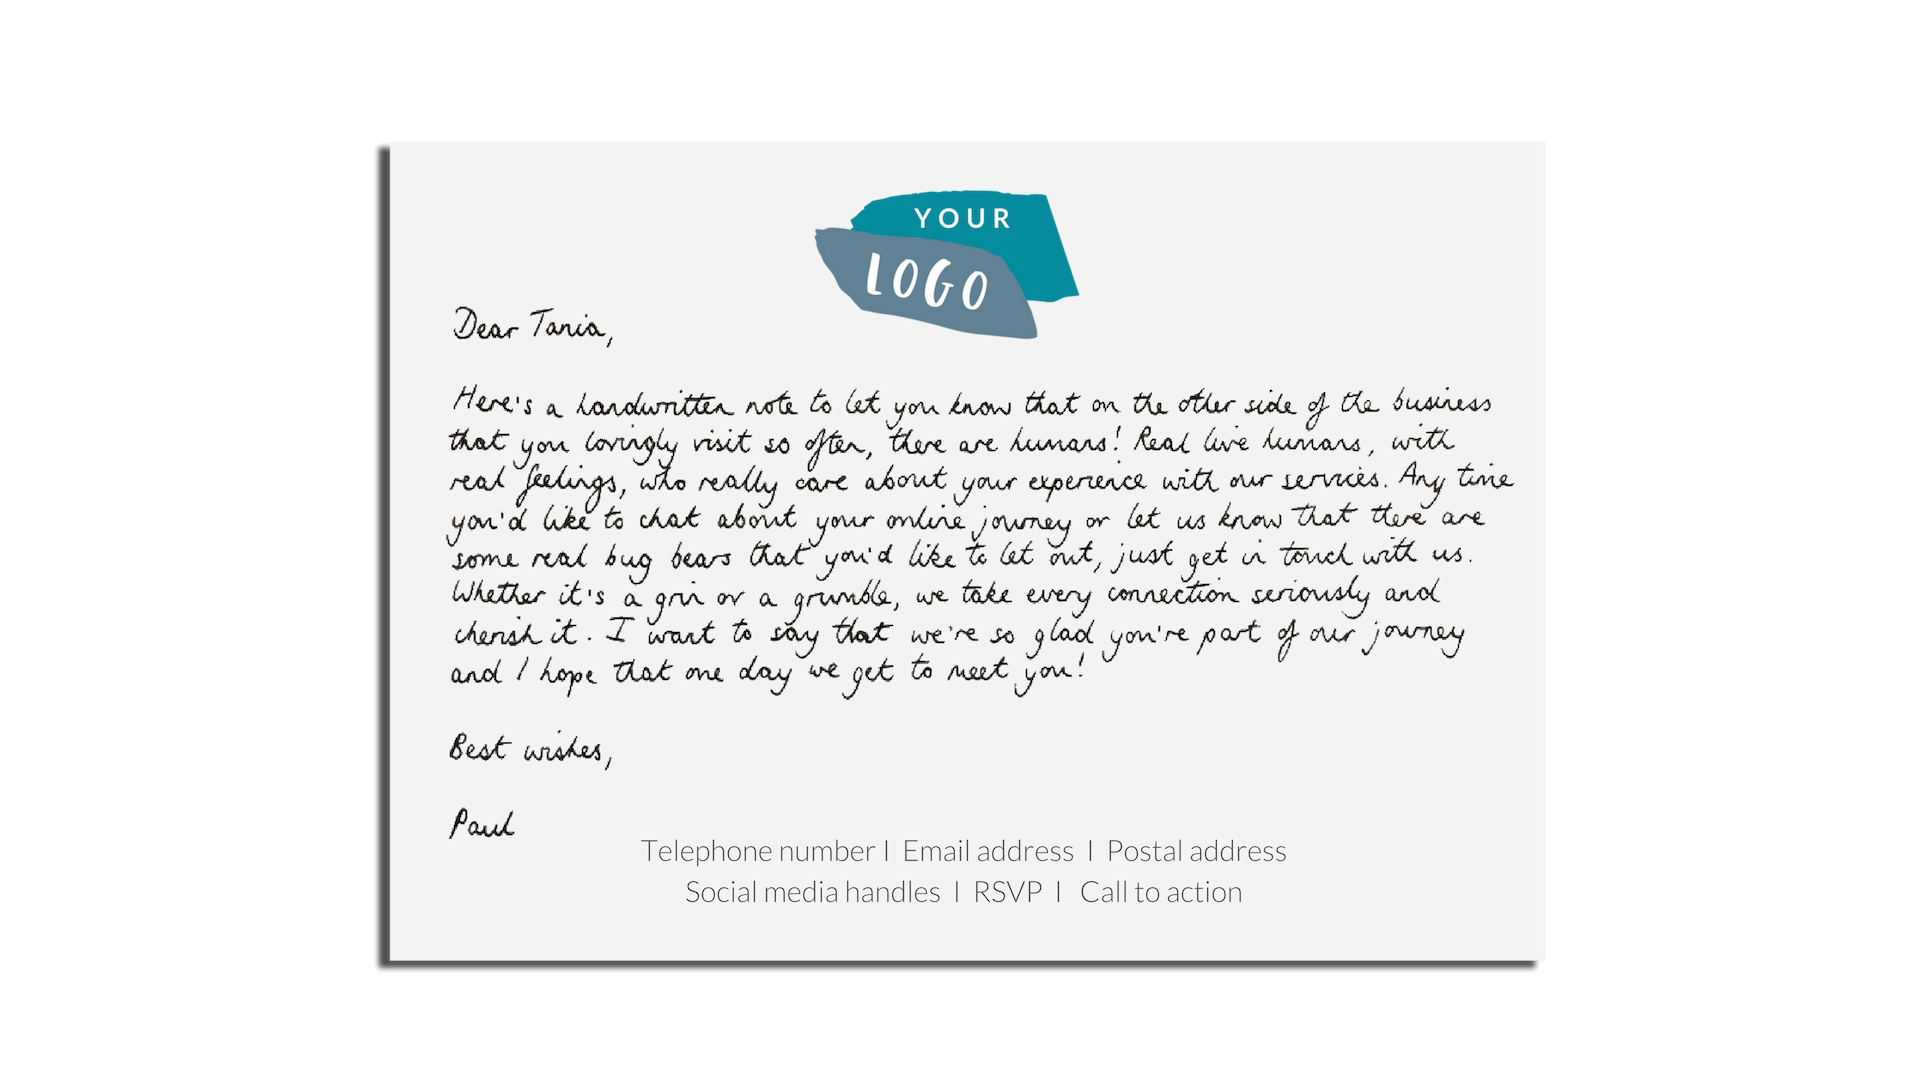 YOUR
LOGO
Dear Tania,
Here's a handwritten note to let you know that on the other side of the business
that you lovingly visit so often, there are humans! Real live humans, with
real feelings, who really care about your experience with our services. Any time
you'd like to chat about your online journey or let us know that there are
some real bug bears that you'd like to let out, just get in touch with us.
Whether it's a grin or a grumble, we take every connection seriously and
cherish it. I want to say that we're so glad you're part of our journey
and I hope that one day we get to meet you!
Best wishes,
Paul
Telephone number I Email address I Postal address
Social media handles I RSVP I Call to action